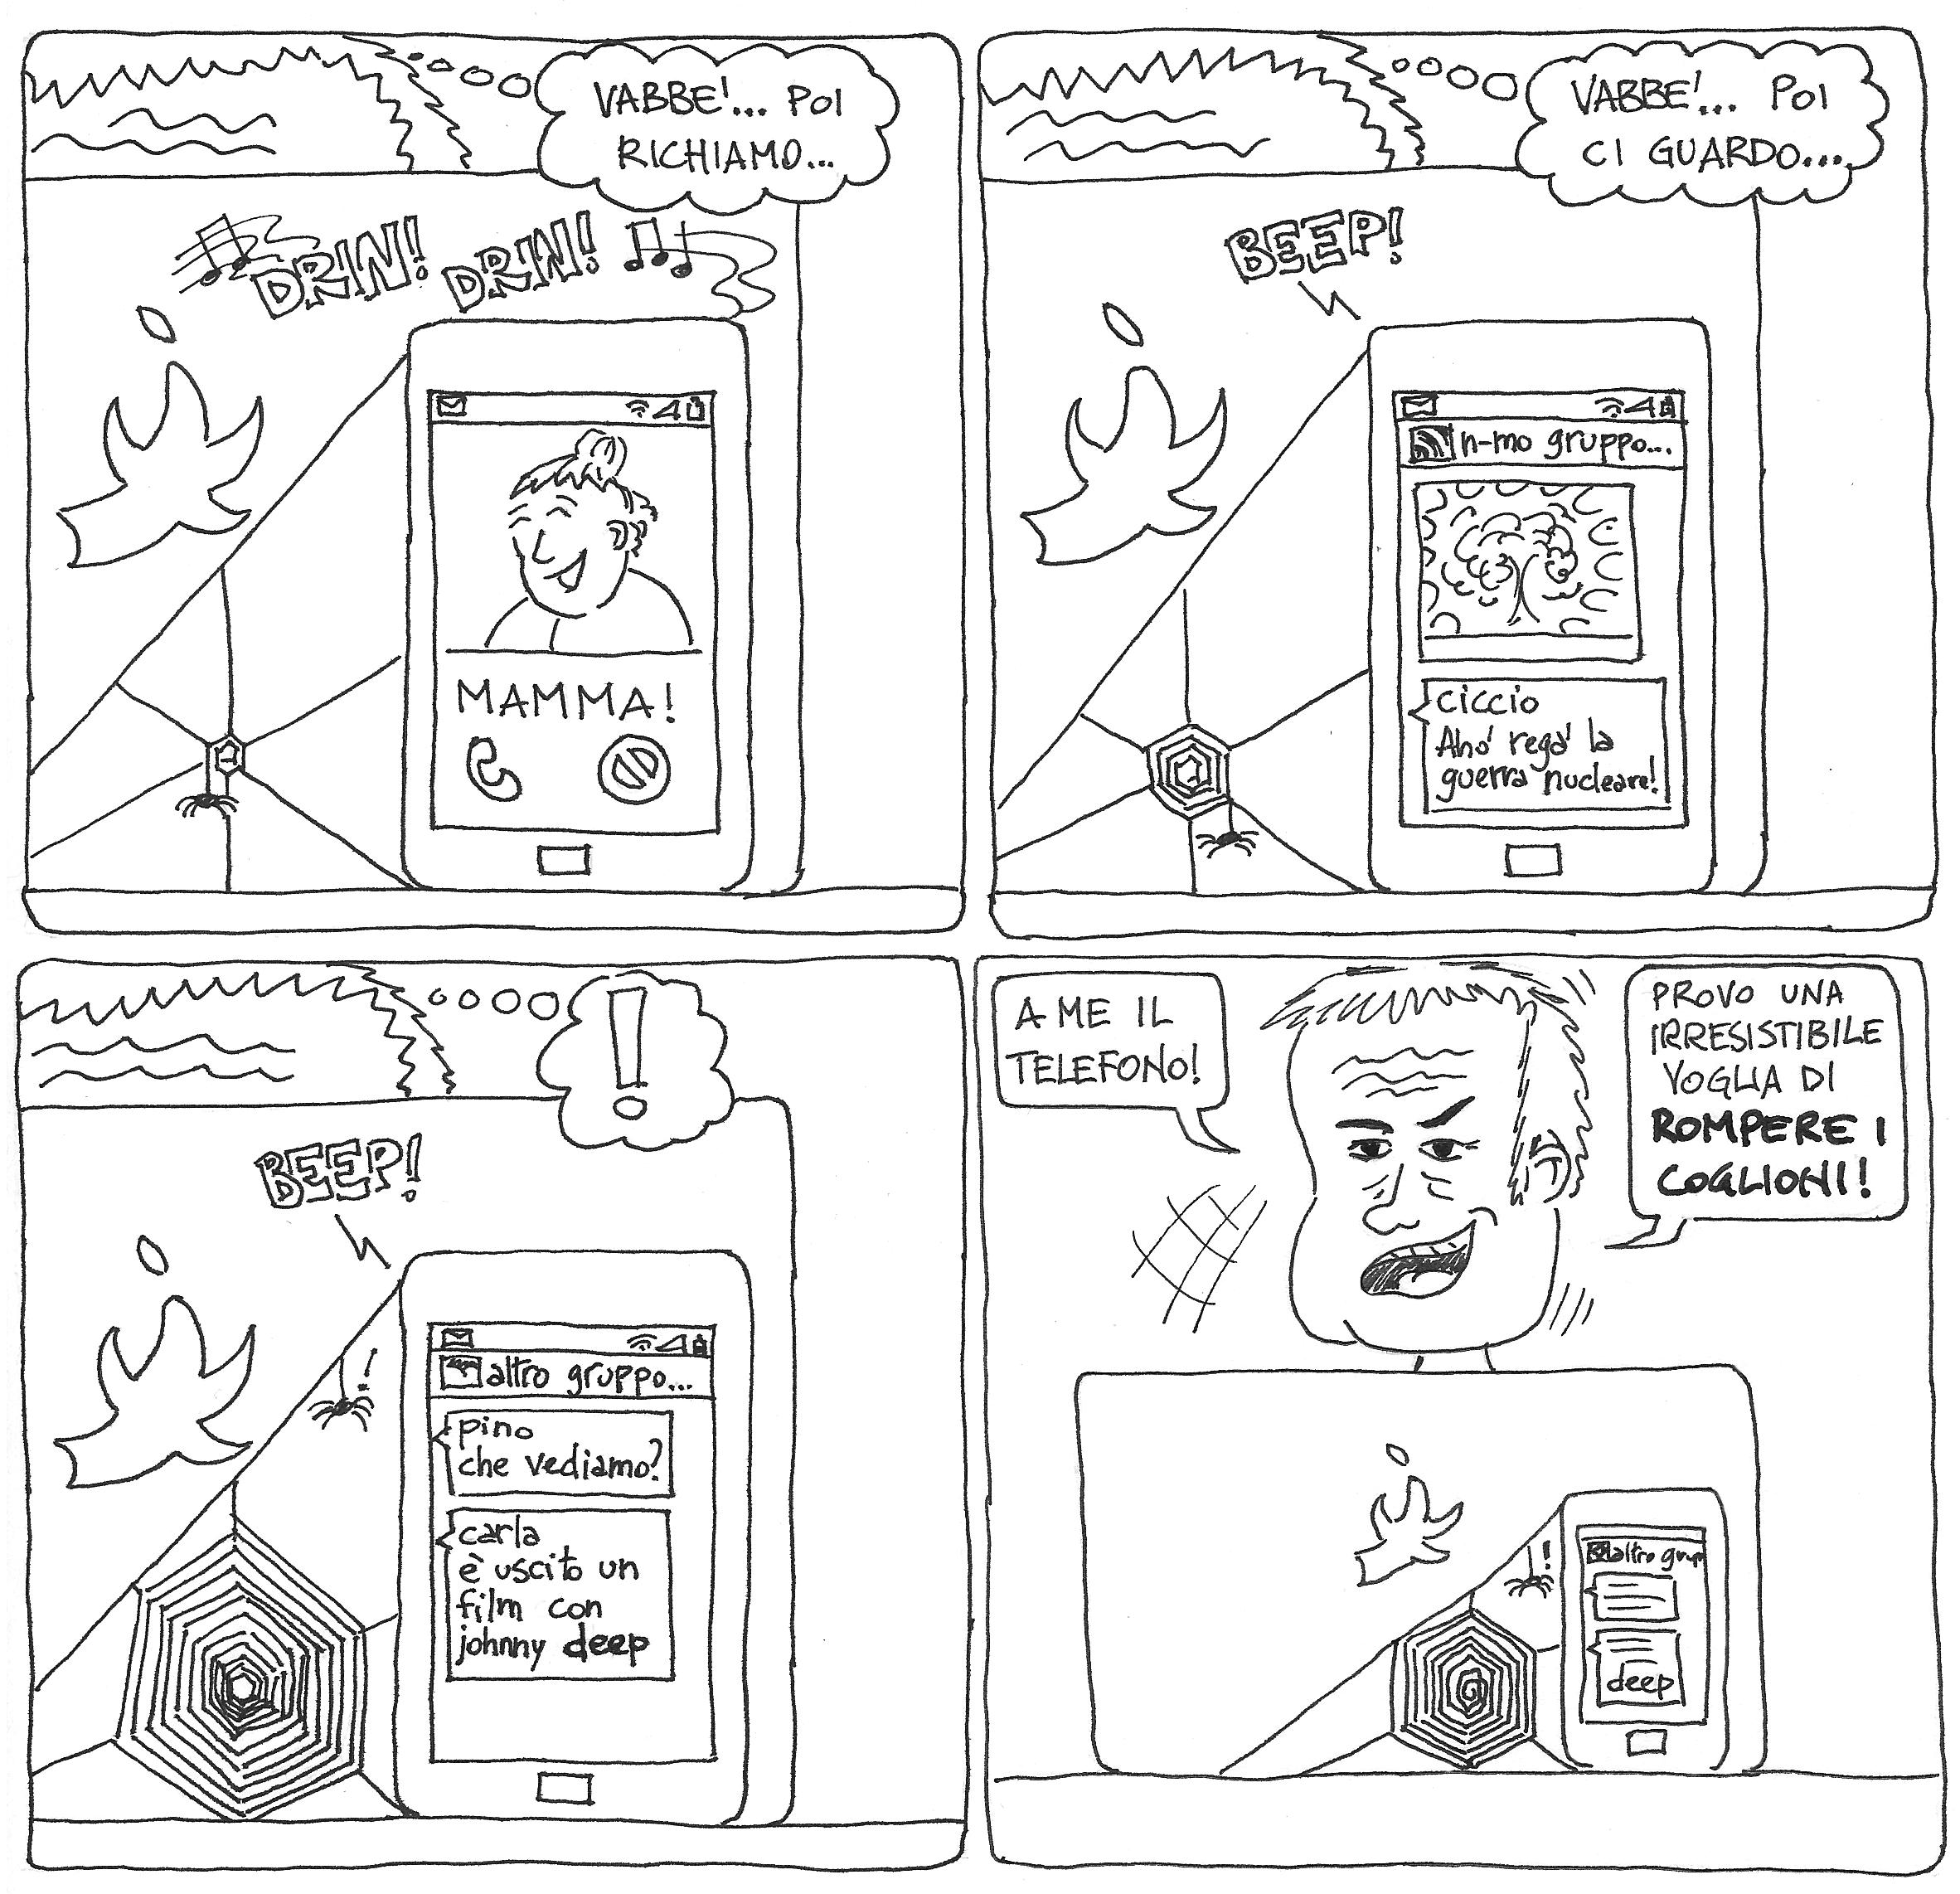 VABBE'... POI
RICHIAMO...
DRIN! DRIN!
MAMMA!
VABBE'... POI
CI GUARDO...
BEEP!
n-mo gruppo...
ciccio
Aho' rega' la
guerra nucleare!
!
BEEP!
!
altro gruppo...
pino
che vediamo?
carla
è uscito un
film con
johnny deep
A ME IL
TELEFONO!
PROVO UNA
IRRESISTIBILE
VOGLIA DI
ROMPERE I
COGLIONI!
!
altro grup
deep